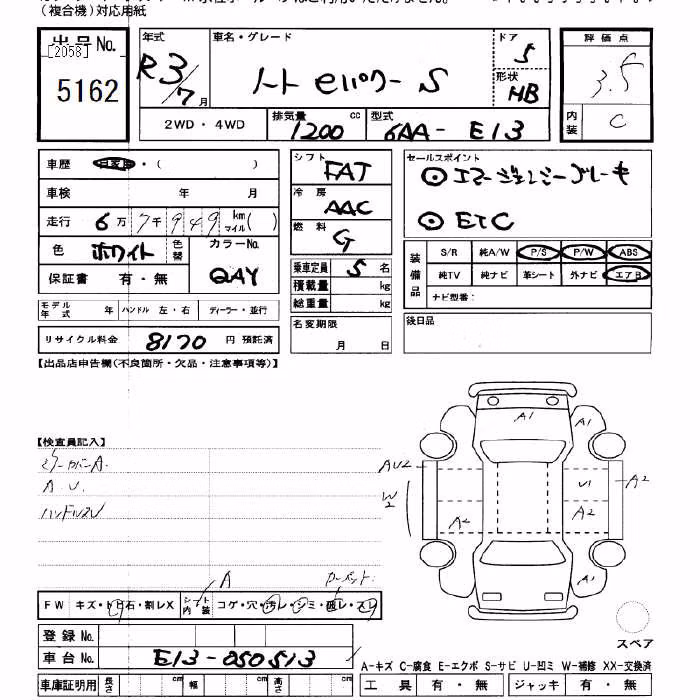 (複合機)対応用紙
出品No.
[2058]
5162
年式
R3/7月
車名・グレード
ノート eパワー S
ドア
5
形状
HB
2WD・4WD
排気量 cc
1200
型式
6AA-E13
評価点
3.5
内装
C
車歴 自家用・( )
車検 年 月
走行 6万7千949km マイル( )
色 ホワイト 色替
カラーNo.
QAY
保証書 有・無
モデル年式 年 ハンドル 左・右 ディーラー・並行
リサイクル料金 8170 円 預託済
シフト
FAT
冷房
AAC
燃料
G
乗車定員 5 名
積載量 kg
総重量 kg
名変期限
月 日
セールスポイント
◎エマージェンシーブレーキ
◎ETC
装備品
S/R 純A/W P/S P/W ABS
純TV 純ナビ 革シート 外ナビ エアB
ナビ型番:
後日品
【出品店申告欄(不良箇所・欠品・注意事項等)】
【検査員記入】
ミラーカバーA.
A.U.
ハンドルスレ
A1
A1
AU2
W2
U1
A2
A2
A2
A1
スペア
A
カーペット
FW キズ・トビ石・割レX
シート内装 コゲ・穴・汚レ・シミ・破レ・スレ
登録No.
車台No. E13-050513
車庫証明用 長さ cm 幅 cm 高さ cm
A-キズ C-腐食 E-エクボ S-サビ U-凹ミ W-補修 XX-交換済
工具 有・無 ジャッキ 有・無